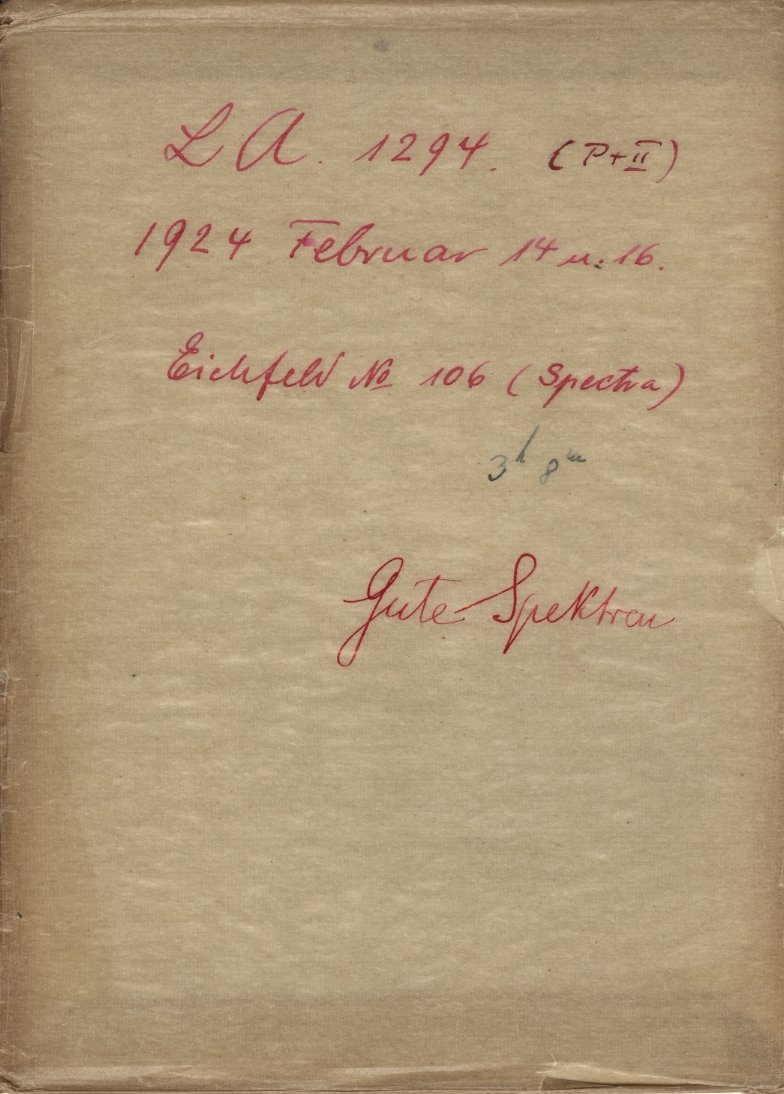 L A. 1294. (P+II)
1924 Februar 14 u. 16.
Eichfeld No 106 (Spectra)
3h 8m
Gute Spektren